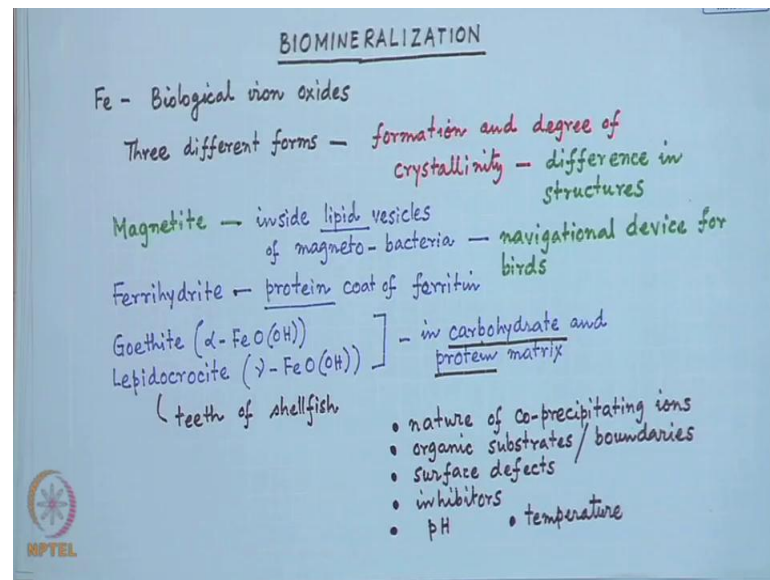 BIOMINERALIZATION
Fe - Biological iron oxides
Three different forms — formation and degree of
crystallinity — difference in
structures
Magnetite — inside lipid vesicles
of magneto-bacteria — navigational device for
birds
Ferrihydrite — protein coat of ferritin
Goethite (α-FeO(OH))
Lepidocrocite (γ-FeO(OH))
- in carbohydrate and
protein matrix
teeth of shellfish
• nature of co-precipitating ions
• organic substrates / boundaries
• surface defects
• inhibitors
• pH • temperature
NPTEL